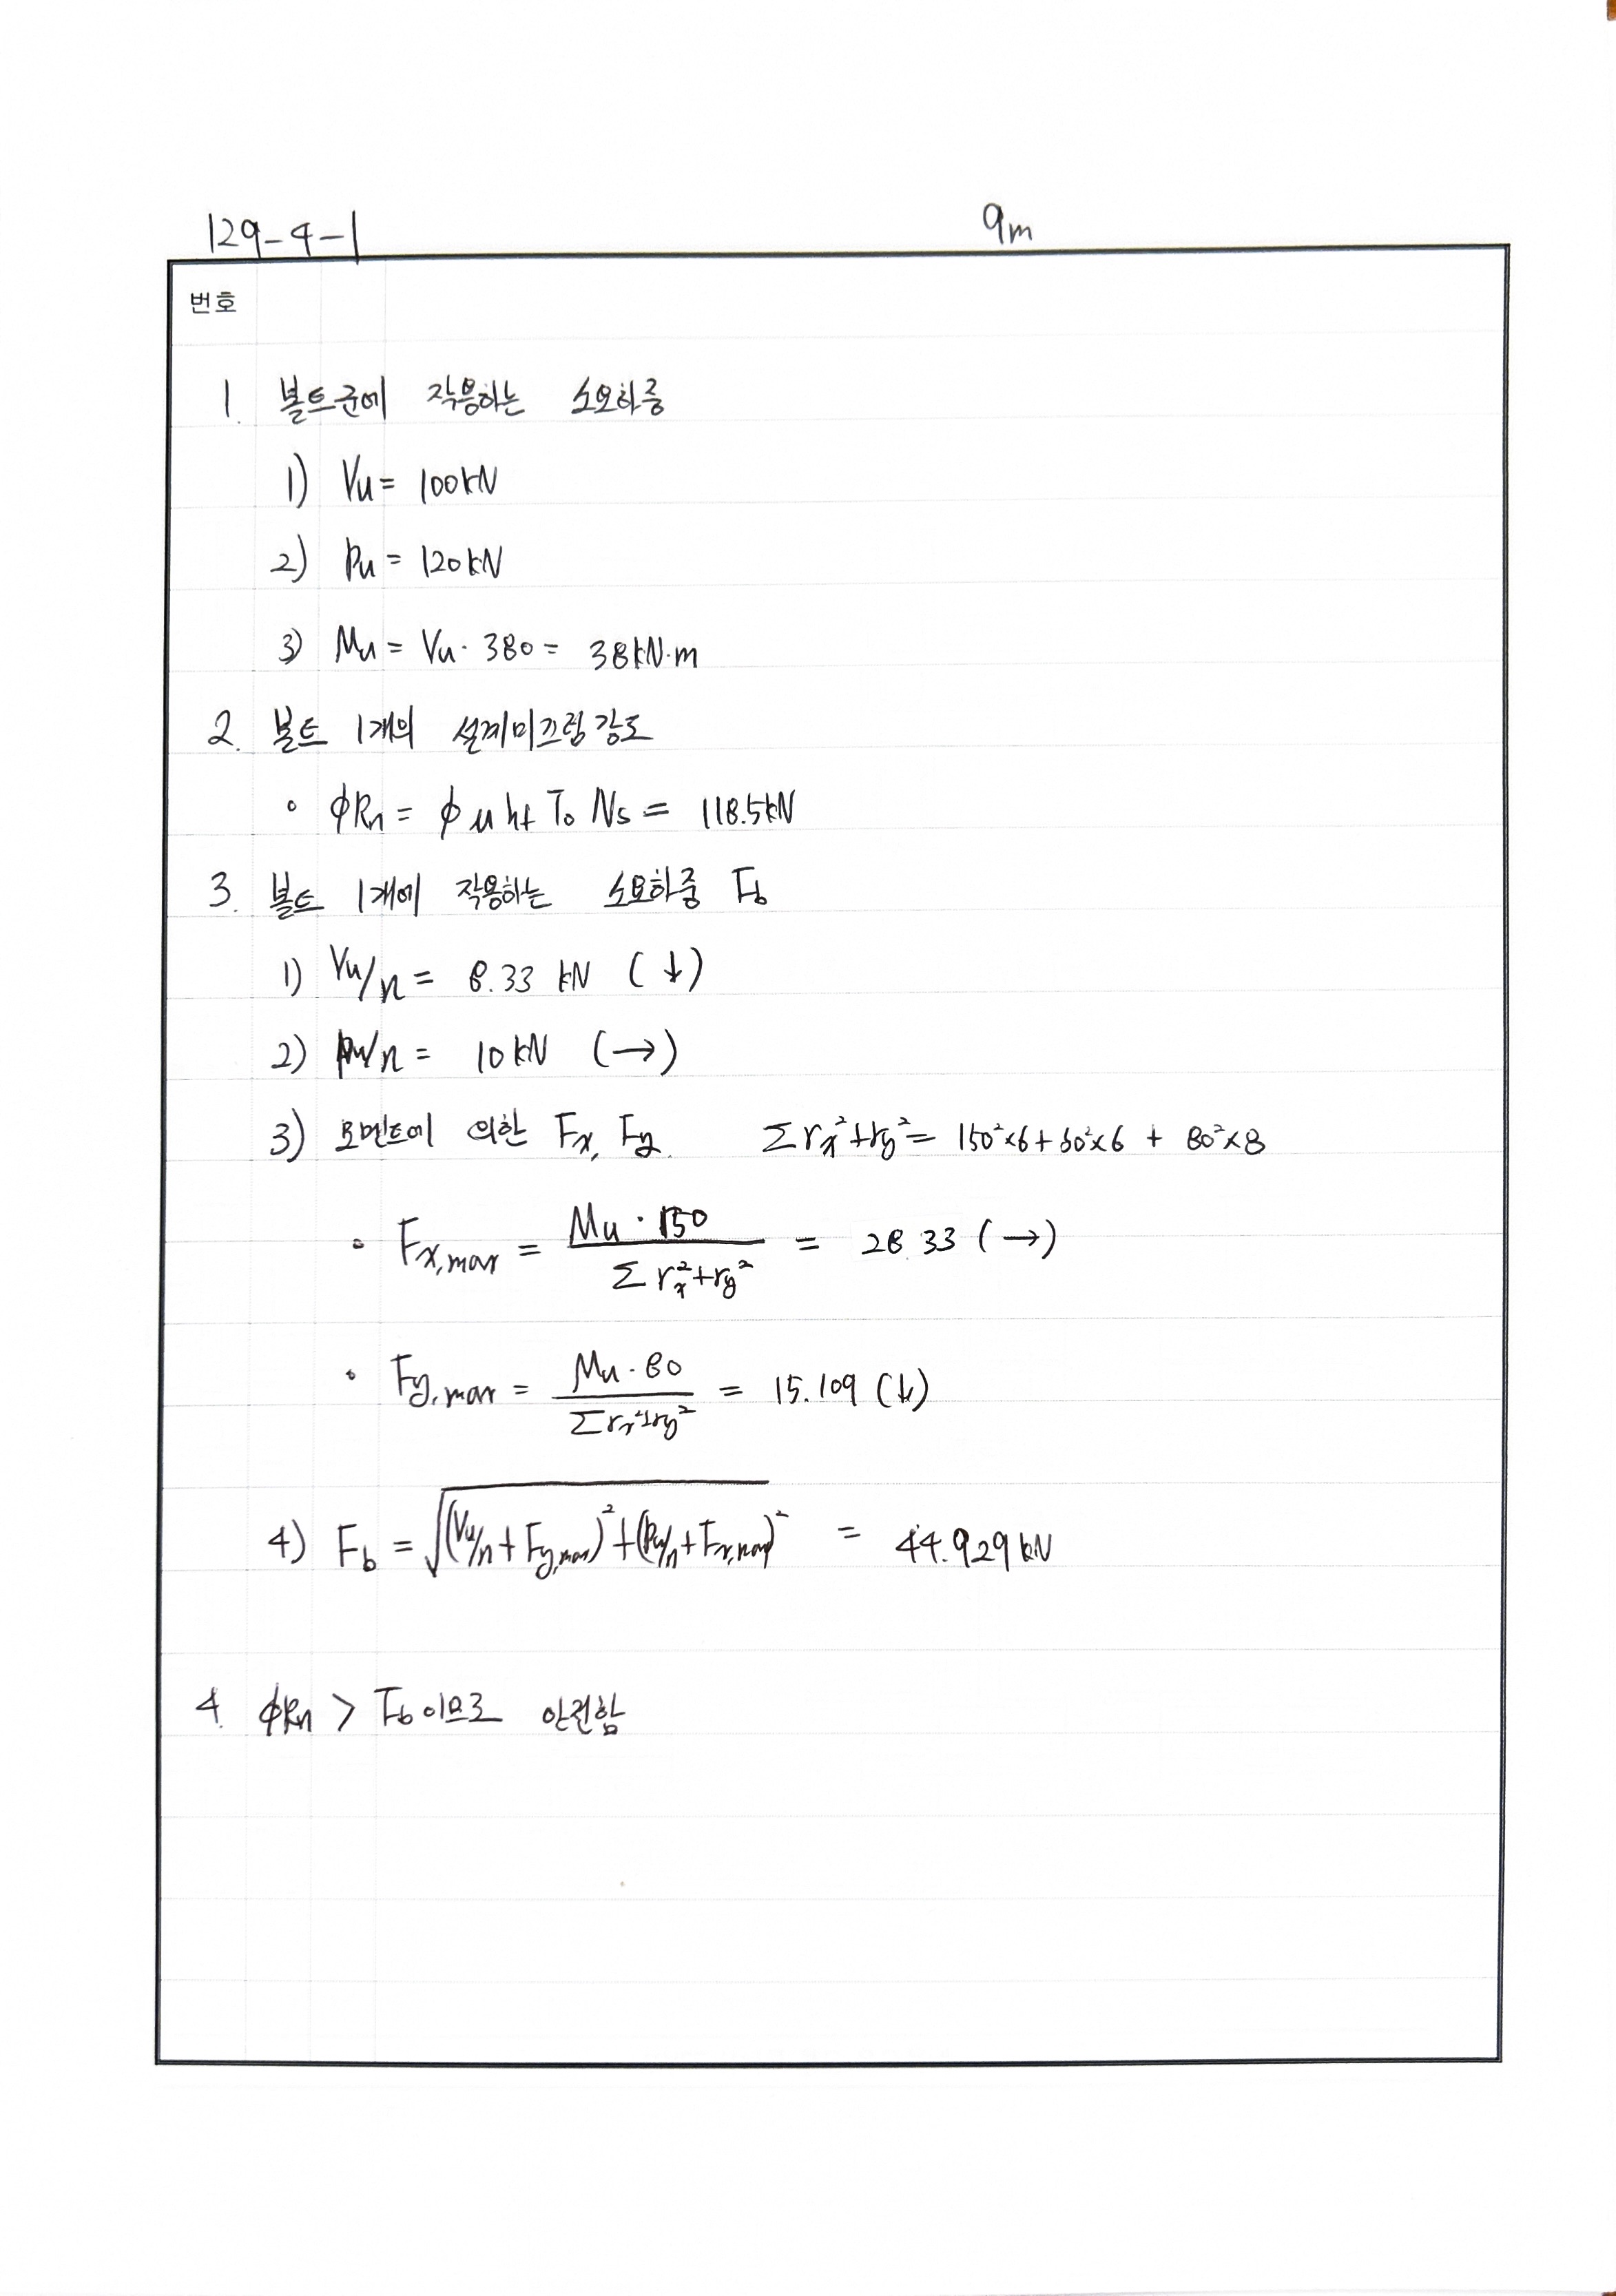 129-4-1
9m
번호
1. 볼트군에 작용하는 소요하중
1) Vu = 100kN
2) Pu = 120kN
3) Mu = Vu · 380 = 38kN·m
2. 볼트 1개의 설계미끄럼강도
• ϕRn = ϕ μ hf To Ns = 118.5kN
3. 볼트 1개에 작용하는 소요하중 Fb
1) Vu/n = 8.33 kN (↓)
2) Pu/n = 10kN (→)
3) 모멘트에 의한 Fx, Fy. Σrx²+ry² = 150²×6+50²×6 + 80²×8
• Fx,max = Mu · 150 / Σrx²+ry² = 28.33 (→)
• Fy,max = Mu · 80 / Σrx²+ry² = 15.109 (↓)
4) Fb = √(Vu/n + Fy,max)² + (Pu/n + Fx,max)² = 44.929 kN
4. ϕRn > Fb 이므로 안전함